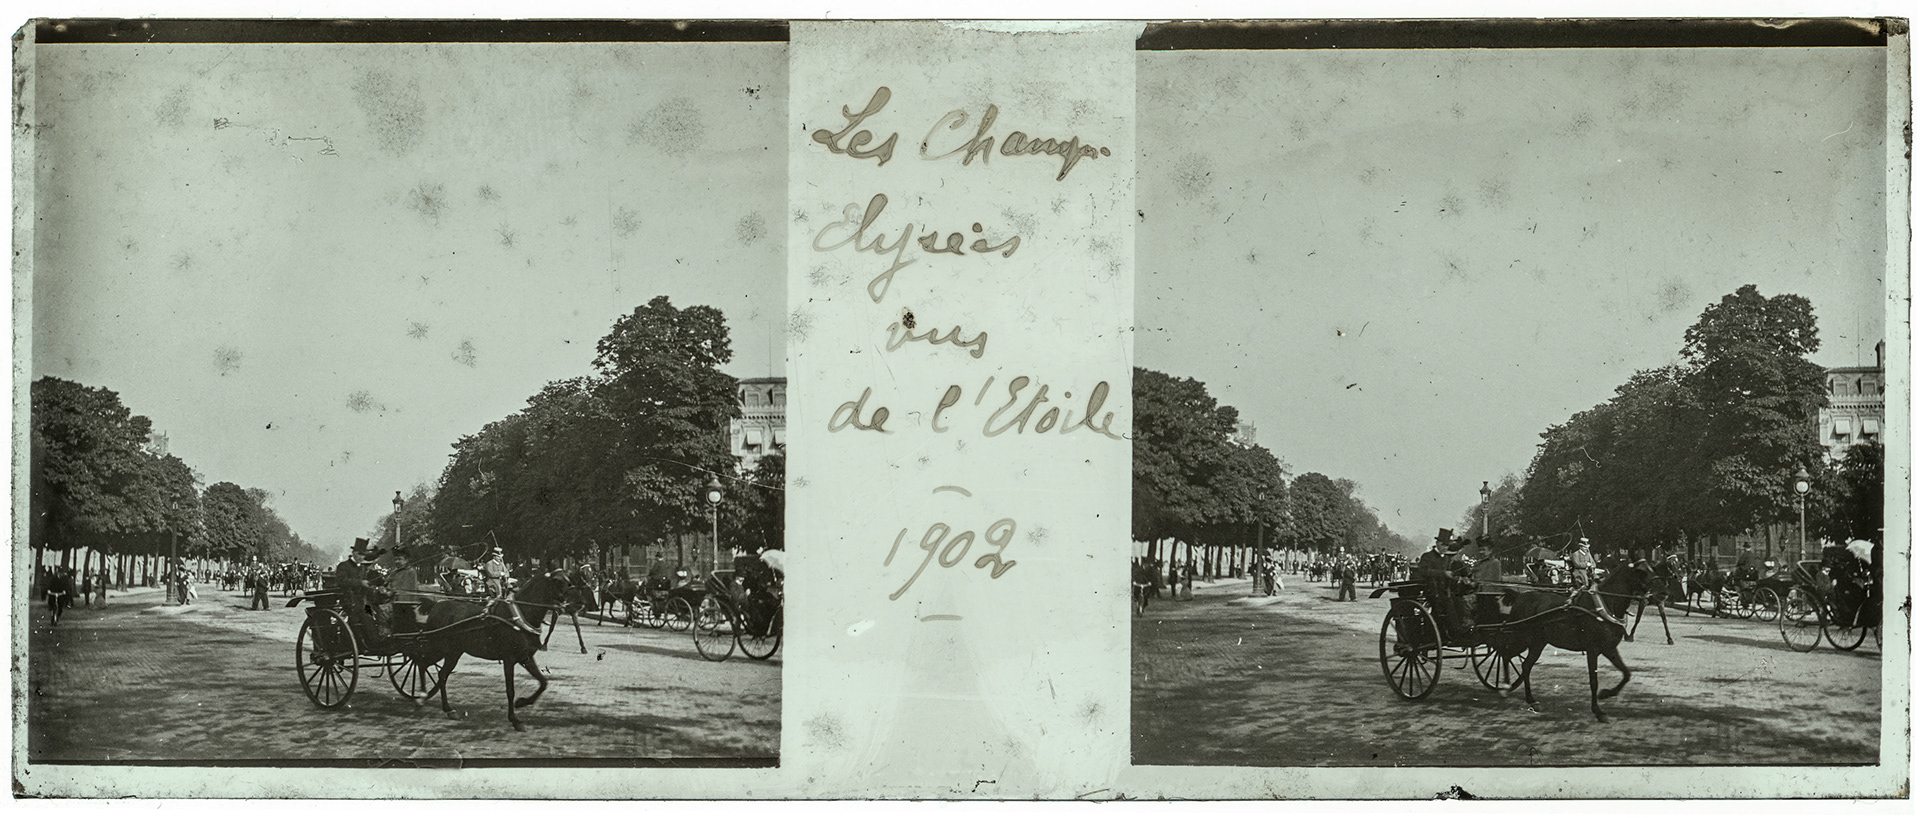 Les Champs
Elysées
vus
de l'Etoile
1902